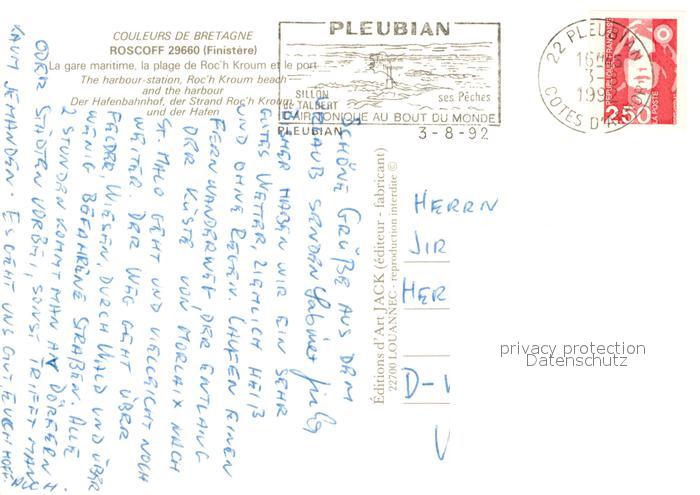 COULEURS DE BRETAGNE
ROSCOFF 29660 (Finistère)
La gare maritime, la plage de Roc'h Kroum et le port
The harbour-station, Roc'h Kroum beach
and the harbour
Der Hafenbahnhof, der Strand Roc'h Kroum
und der Hafen
PLEUBIAN
SILLON
DE TALBERT
ses Pêches
CLAIR TONIQUE AU BOUT DU MONDE
PLEUBIAN
3-8-92
22 PLEUBIAN
16H
3-8
199
COTES D'ARMOR
REPUBLIQUE FRANÇAISE
2,50
LA POSTE
Editions d'Art JACK (éditeur - fabricant)
22700 LOUANNEC - reproduction interdite ©
SCHÖNE GRÜßE AUS DEM
URLAUB SENDEN Sabine
BISHER HABEN WIR EIN SEHR
GUTES WETTER, ZIEMLICH HEIß
UND OHNE REGEN. LAUFEN EINEN
FERNWANDERWEG, DER ENTLANG
DER KÜSTE VON MORLAIX NACH
ST. MALO GEHT UND VIELLEICHT NOCH
WEITER. DER WEG GEHT ÜBER
FELDER, WIESEN, DURCH WALD UND ÜBER
WENIG BEFAHRENE STRAßEN. ALLE
2 STUNDEN KOMMT MAN AN DÖRFERN
ODER STÄDTEN VORBEI, SONST TRIFFT MAN
KAUM JEMANDEN. ES GEHT UNS GUT, EUCH HOFF.
HERRN
JIR
HER
D-
privacy protection
Datenschutz